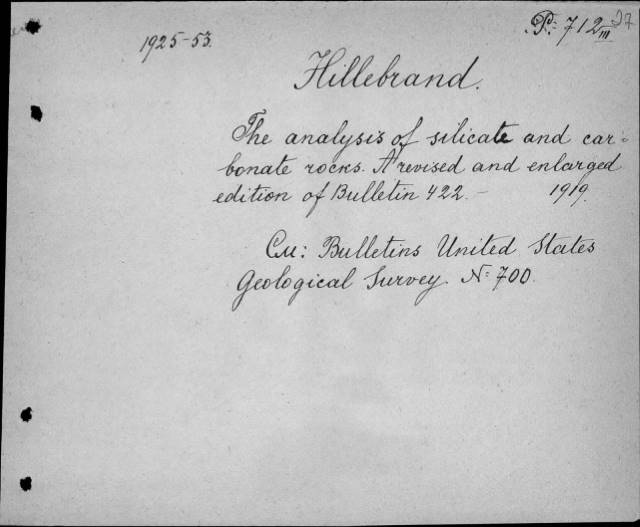 1925-53.
P: 712 III 27
Hillebrand.
The analysis of silicate and car-
bonate rocks. A revised and enlarged
edition of Bulletin 422. – 1919.
См: Bulletins United States
Geological Survey. N: 700.